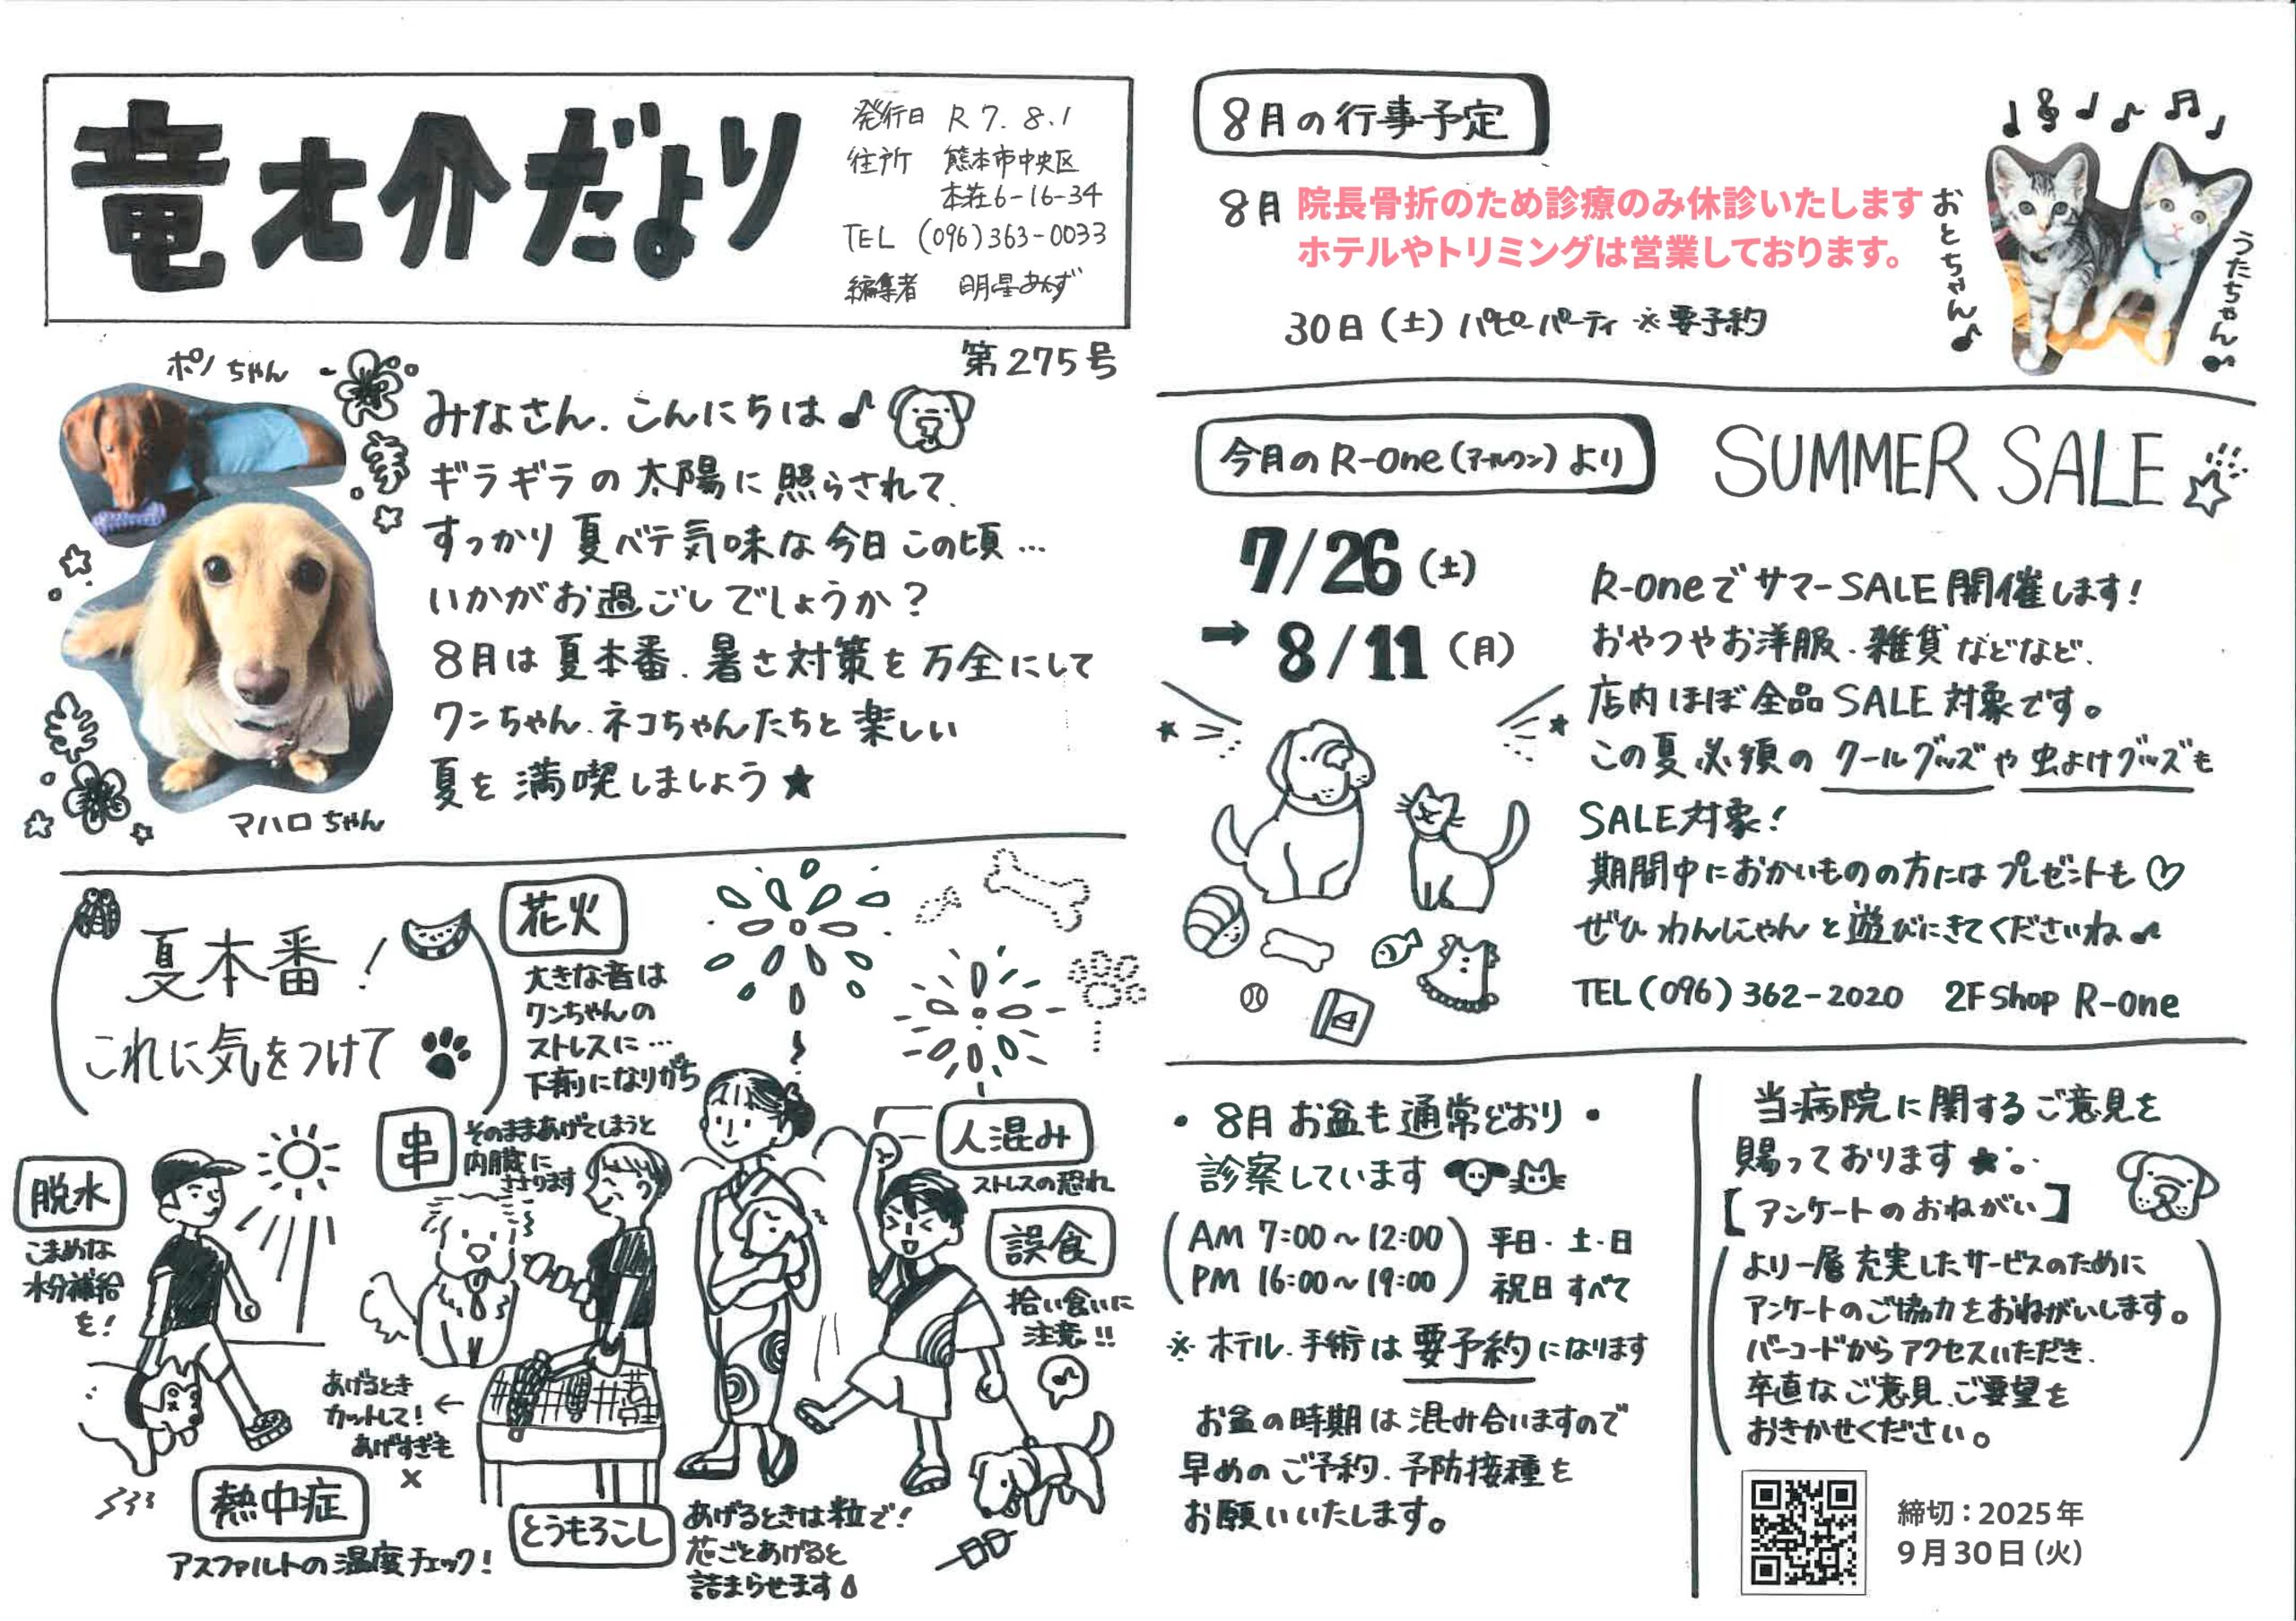 竜才介だより
発行日 R7.8.1
住所 熊本市中央区
本荘6-16-34
TEL (096)363-0033
編集者 明星あんず
第275号
ポノちゃん
みなさん、こんにちは♪
ギラギラの太陽に照らされて、
すっかり夏バテ気味な今日この頃…
いかがお過ごしでしょうか?
8月は夏本番、暑さ対策を万全にして
ワンちゃん、ネコちゃんたちと楽しい
夏を満喫しましょう★
マハロちゃん
夏本番!
これに気をつけて
花火
大きな音は
ワンちゃんの
ストレスに…
下痢になりがち
串
そのままあげてしまうと
内臓に
ささります
脱水
こまめな
水分補給
を!
人混み
ストレスの恐れ
誤食
拾い食いに
注意!!
あげるとき
カットして!←
あげすぎも
×
熱中症
アスファルトの温度チェック!
とうもろこし
あげるときは粒で!
芯ごとあげると
詰まらせます
8月の行事予定
8月 院長骨折のため診療のみ休診いたします
ホテルやトリミングは営業しております。
30日(土)パピーパーティ ※要予約
おとちゃん♪
うたちゃん♪
今月のR-one(アールワン)より
SUMMER SALE
7/26(土)
→ 8/11(月)
R-oneでサマーSALE開催します!
おやつやお洋服、雑貨などなど、
店内ほぼ全品SALE対象です。
この夏必須のクールグッズや虫よけグッズも
SALE対象!
期間中におかいものの方にはプレゼントも♡
ぜひわんにゃんと遊びにきてくださいね♪
TEL(096)362-2020 2F shop R-one
・8月お盆も通常どおり・
診察しています
(AM 7:00~12:00 平日・土・日
PM 16:00~19:00) 祝日すべて
※ホテル、手術は要予約になります
お盆の時期は混み合いますので
早めのご予約、予防接種を
お願いいたします。
当病院に関するご意見を
賜っております★
【アンケートのおねがい】
より一層充実したサービスのために
アンケートのご協力をおねがいします。
バーコードからアクセスいただき、
卒直なご意見、ご要望を
おきかせください。
締切:2025年
9月30日(火)